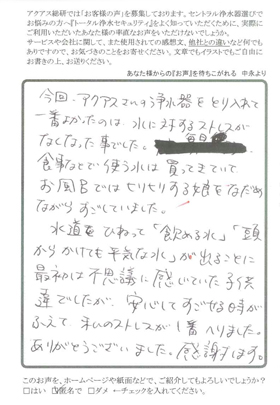 アクアス総研では「お客様の声」を募集しております。セントラル浄水器選びで
お悩みの方へ『トータル浄水セキュリティ』をよく知っていただくために、実際に
ご利用いただいたあなた様の率直なお声をいただけないでしょうか。
サービスや会社に関して、また使用されての感想文、他社との違いなど何でも
ありですので、お気づきのことをお寄せください。文章でもイラストでもご自由に
お書きの上、お送りください。
あなた様からの『お声』を待ちこがれる 中永より
今回、アクアスという浄水器をとり入れて
一番よかったのは、水に対するストレスが
なくなった事でした。毎日
食事などで使う水は買ってきていて
お風呂ではヒリヒリする娘をなだめ
ながらすごしていました。
水道をひねって「飲める水」「頭
からかけても平気な水」が出ることに
最初は不思議に感じていた子供
達でしたが、安心してすごせる時が
ふえて、私のストレスが1番へりました。
ありがとうございました。感謝します。
このお声を、ホームページや紙面などで、ご紹介してもよろしいでしょうか?
□はい ☑匿名で □ダメ ←チェックを入れてください。